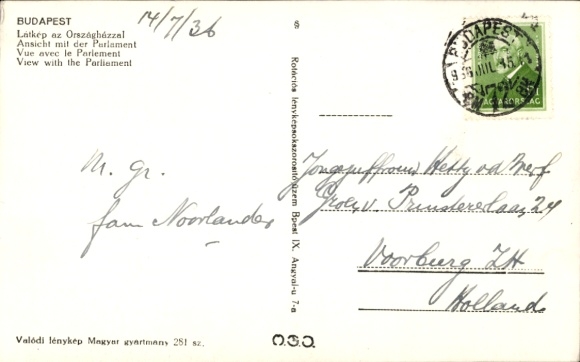 BUDAPEST
Látkép az Országházzal
Ansicht mit der Parlament
Vue avec le Parlement
View with the Parliament
14/7/36
M. Gr.
fam Noorlander
Valódi lénykép Magyar gyártmány 281 sz.
Rotációs fényképsokszorosító üzem Bpest IX. Angyal-u 7-a
O.S.O.
BUDAPEST
936 JUL 15
MAGYARORSZÁG
Jongejuffrouw Hetty vd Werf
Groen v. Prinstererlaan 24
Voorburg ZH
Holland